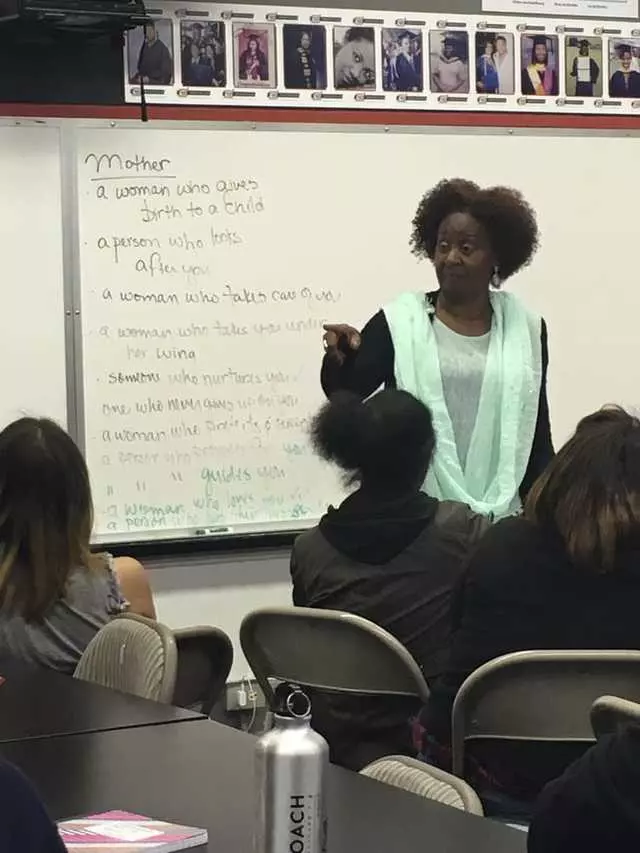 Mother
· a woman who gives
birth to a child
· a person who looks
after you
· a woman who takes care of you
· a woman who takes you under
her wing
· someone who nurtures you
one who never gives up on you
a woman who protects &
a person who you
" " " guides you
a woman who loves you
a person who
OACH